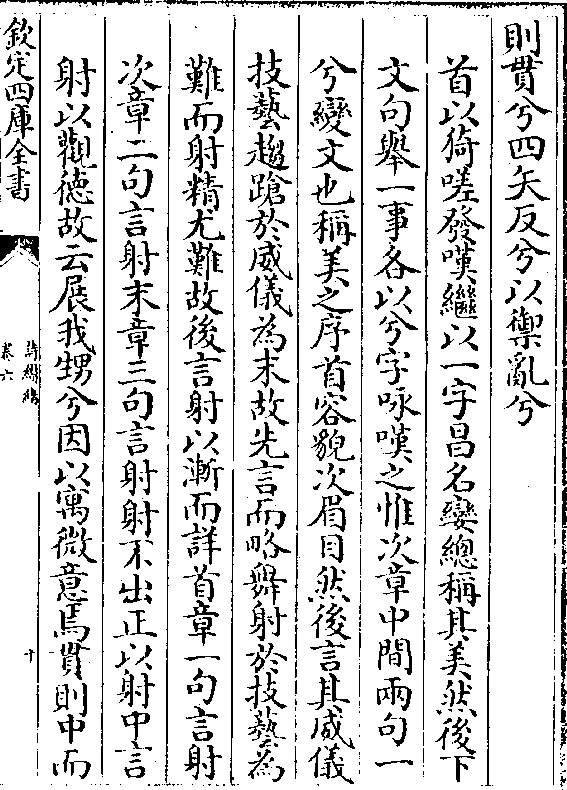 則貫兮四矢反兮以禦亂兮
首以猗嗟發嘆繼以一字昌名孌總稱其美然後下
文句舉一事各以兮字咏嘆之惟次章中間兩句一
兮變文也稱美之序首容貌次眉目然後言其威儀
技藝趨蹌於威儀為末故先言而略舞射於技藝為
難而射精尤難故後言射以漸而詳首章一句言射
次章二句言射末章三句言射射不出正以射中言
射以觀德故云展我甥兮因以寓微意焉貫則中而
欽定四庫全書
卷六
十